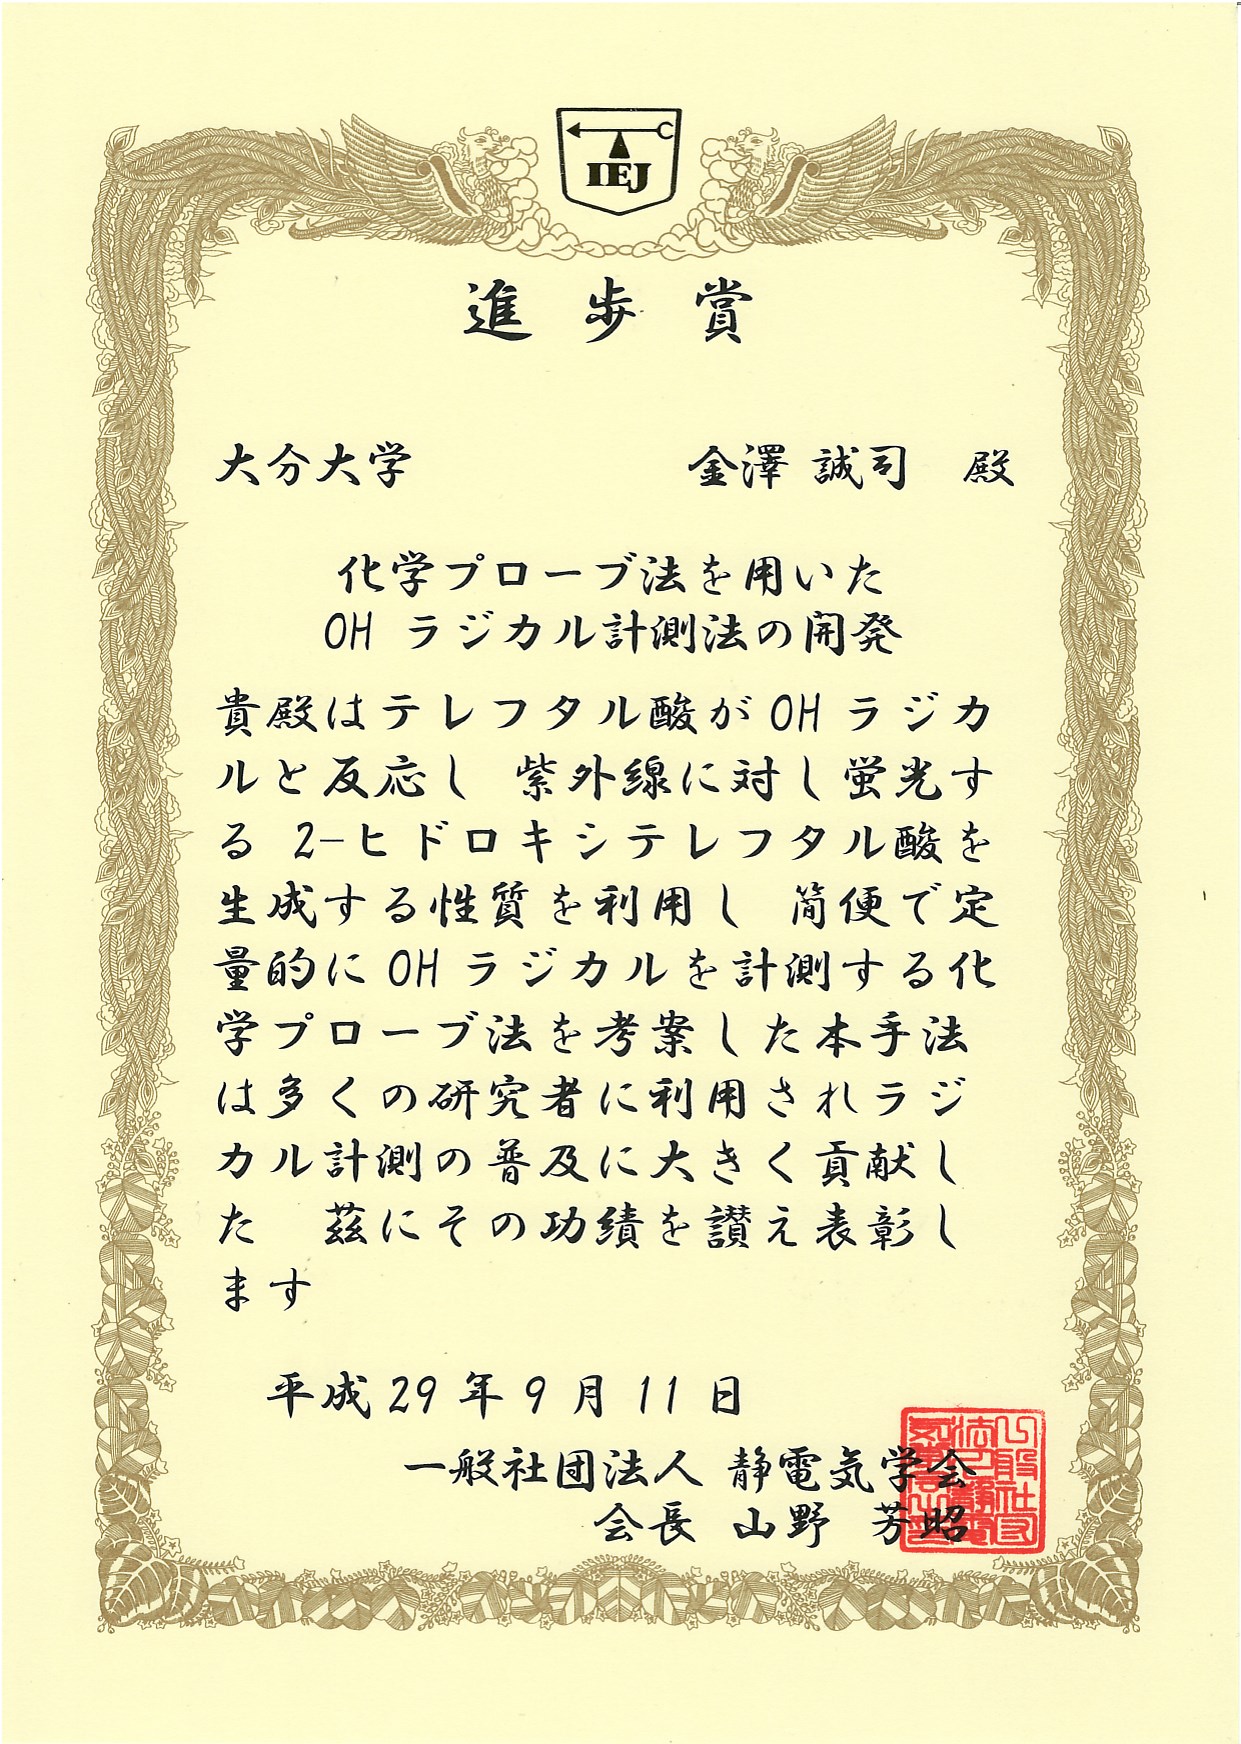 IEJ
進歩賞
大分大学 金澤 誠司 殿
化学プローブ法を用いた
OH ラジカル計測法の開発
貴殿はテレフタル酸がOHラジカ
ルと反応し 紫外線に対し蛍光す
る 2-ヒドロキシテレフタル酸を
生成する性質を利用し 簡便で定
量的にOHラジカルを計測する化
学プローブ法を考案した本手法
は多くの研究者に利用されラジ
カル計測の普及に大きく貢献し
た 茲にその功績を讃え表彰し
ます
平成29年9月11日
一般社団法人 静電気学会
会長 山野 芳昭